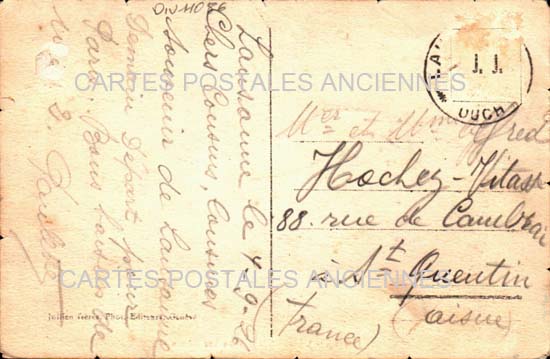 Div 11086
Lausanne le 4-9-26
Chers Cousins, Cousines
Souvenir de Lausanne
Demain départ pour
Paris. Bons baisers de
CARTES POSTALES ANCIENNES
CARTES POSTALES ANCIENNES
LA
J. J.
OUCH
Mr et Mme Alfred
Hochez-Vitasse
88 rue de Cambrai
à St Quentin
(aisne)
(France)
Jullien frères, Phot.-Editeurs